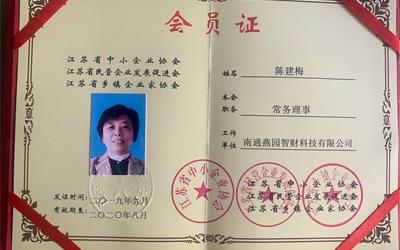 会员证
江苏省中小企业协会
江苏省民营企业发展促进会
江苏省乡镇企业家协会
发证时间：二〇一九年九月
有效期至：二〇二〇年八月
姓名 陈建梅
本会职务 常务理事
工作单位 南通燕园智财科技有限公司
江苏省中小企业协会
江苏省民营企业发展促进会
江苏省乡镇企业家协会
江苏省中小企业协会